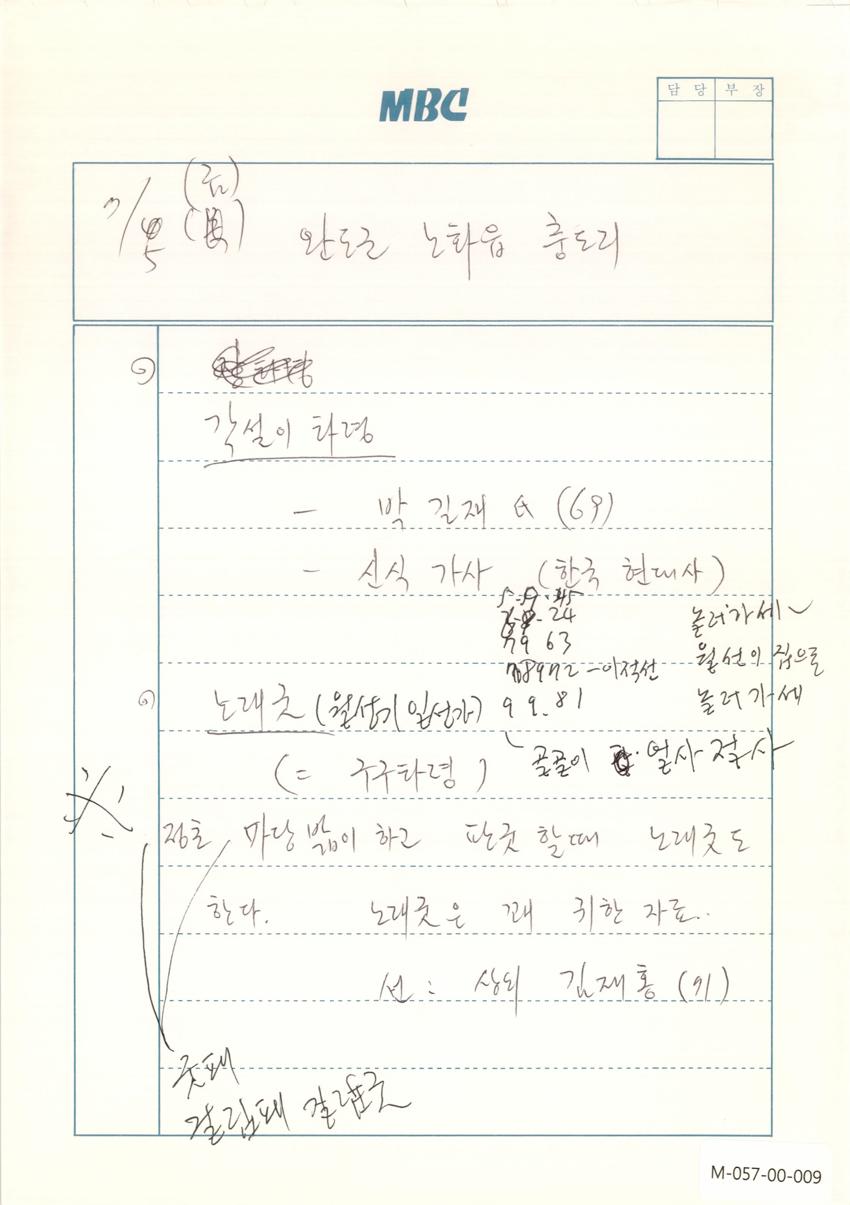 MBC
담당 부장
7/5 (금)
완도군 노화읍 충도리
각설이 타령
- 박길재 (69)
- 신식 가사 (한국 현대사)
5.9.45
24
79 63
78972 - 이적선
99.81
놀러가세~
월선이 집으로
놀러가세
노래굿 (월성가 일선가)
골골이 열사 절사
(= 구구타령)
※ 정초 마당밟이 하고 판굿 할때 노래굿도
한다. 노래굿은 꽤 귀한 자료..
선: 상쇠 김재홍 (91)
굿패
걸립패 걸립굿
M-057-00-009